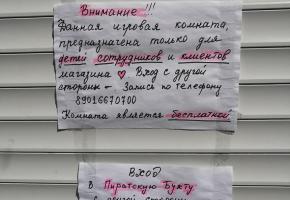 Внимание !!!
Данная игровая комната,
предназначена только для
детей сотрудников и клиентов
магазина ♡ Вход с другой
стороны – Запись по телефону
89016670700
Комната является бесплатной
Вход
в Пиратскую Бухту
с другой стороны